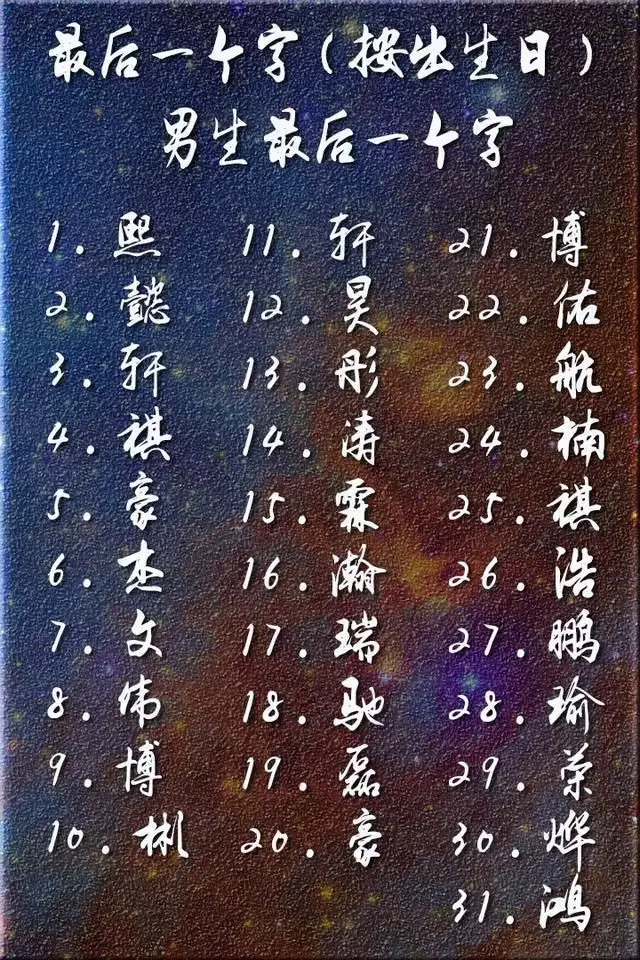 最后一个字（按出生日）
男生最后一个字
1．熙 11．轩 21．博
2．懿 12．昊 22．佑
3．轩 13．彤 23．航
4．祺 14．涛 24．楠
5．豪 15．霖 25．祺
6．杰 16．瀚 26．浩
7．文 17．瑞 27．鹏
8．伟 18．驰 28．瑜
9．博 19．磊 29．荣
10．彬 20．豪 30．烨
31．鸿